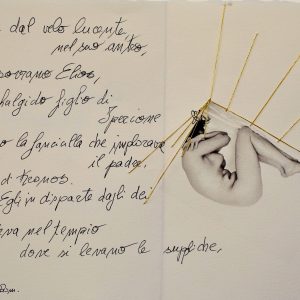 dal velo lucente,
nel suo antro,
sovrano Elios,
fulgido figlio di
Iperione
o la fanciulla che implorava
il padre,
di Kronos.
Egli in disparte dagli dei
nel tempio
dove si levano le suppliche,